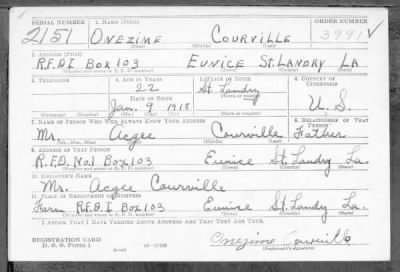 SERIAL NUMBER 1. NAME (Print) ORDER NUMBER
2151 ONEZIME COURVILLE 3991
(First) (Middle) (Last)
2. ADDRESS (Print)
R.F.D.I BOX 103 EUNICE ST. LANDRY LA
(Number and street or R. F. D. number) (Town) (County) (State)
3. TELEPHONE 4. AGE IN YEARS 5. PLACE OF BIRTH 6. COUNTRY OF CITIZENSHIP
22 St. Landry
(Town or county)
DATE OF BIRTH
Jan. 9 1918 U.S.
(Exchange) (Number) (Mo.) (Day) (Yr.) (State or country)
7. NAME OF PERSON WHO WILL ALWAYS KNOW YOUR ADDRESS 8. RELATIONSHIP OF THAT PERSON
Mr. Acgee Courville Father
(Mr., Mrs., Miss) (First) (Middle) (Last)
9. ADDRESS OF THAT PERSON
R.F.D. No.1 Box 103 Eunice St. Landry La.
(Number and street or R. F. D. number) (Town) (County) (State)
10. EMPLOYER'S NAME
Mr. Acgee Courville
11. PLACE OF EMPLOYMENT OR BUSINESS
Farm R.F.D. I Box 103 Eunice St. Landry La.
(Number and street or R. F. D. number) (Town) (County) (State)
I AFFIRM THAT I HAVE VERIFIED ABOVE ANSWERS AND THAT THEY ARE TRUE.
REGISTRATION CARD
D. S. S. FORM 1 (over) 16-17105 Onezime Courville
(Registrant's signature)